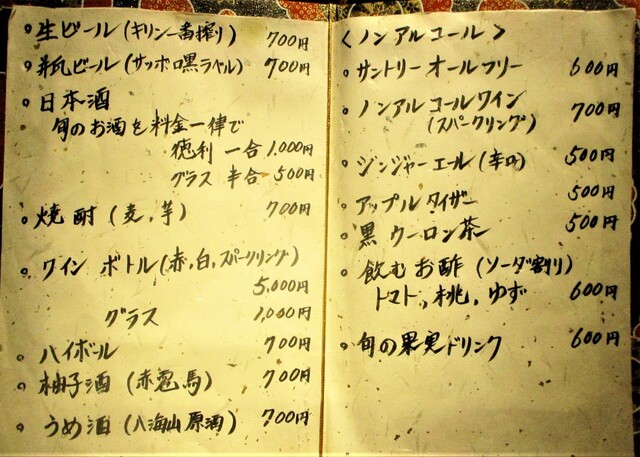 ◦ 生ビール(キリン一番搾り) 700円
◦ 瓶ビール(サッポロ黒ラベル) 700円
◦ 日本酒
旬のお酒を料金一律で
徳利 一合 1,000円
グラス 半合 500円
◦ 焼酎(麦,芋) 700円
◦ ワイン ボトル(赤,白,スパークリング)
5,000円
グラス 1,000円
◦ ハイボール 700円
◦ 柚子酒(赤兎馬) 700円
◦ うめ酒(八海山原酒) 700円
<ノンアルコール>
◦ サントリーオールフリー 600円
◦ ノンアルコールワイン 700円
(スパークリング)
◦ ジンジャーエール(辛口) 500円
◦ アップルタイザー 500円
◦ 黒ウーロン茶 500円
◦ 飲むお酢(ソーダ割り)
トマト,桃,ゆず 600円
◦ 旬の果実ドリンク 600円